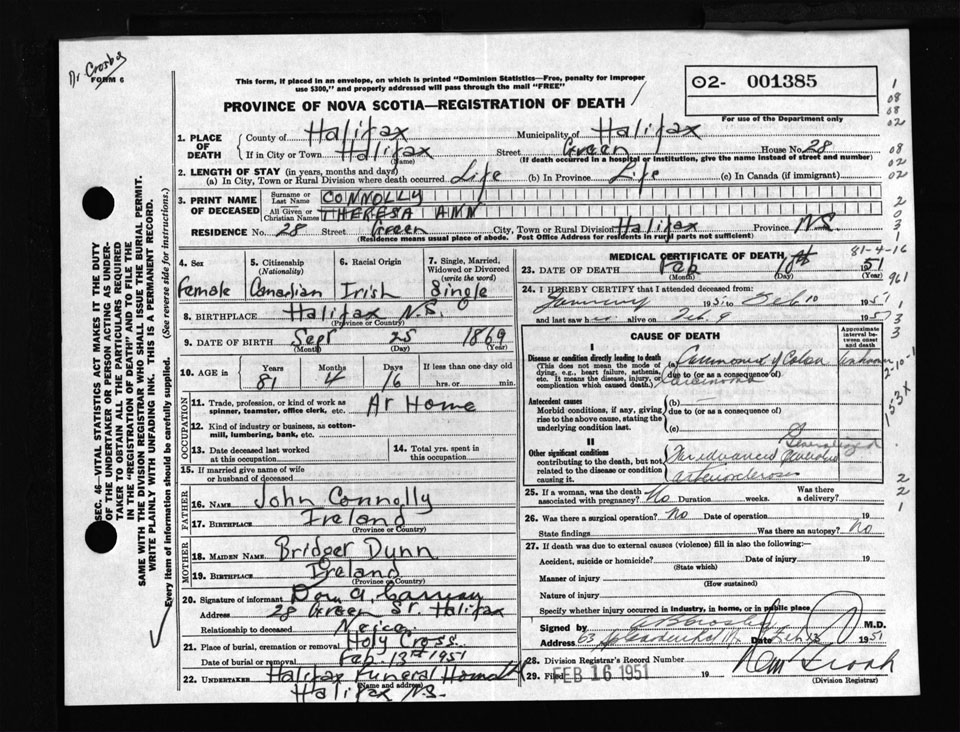 Dr Crosby
FORM 6
This form, if placed in an envelope, on which is printed "Dominion Statistics—Free, penalty for improper
use $300," and properly addressed will pass through the mail "FREE"
PROVINCE OF NOVA SCOTIA—REGISTRATION OF DEATH
02- 001385
For use of the Department only
1. PLACE OF DEATH
County of Halifax Municipality of Halifax
If in City or Town Halifax Street Green House No. 28
(Name) (If death occurred in a hospital or institution, give the name instead of street and number)
2. LENGTH OF STAY (in years, months and days)
(a) In City, Town or Rural Division where death occurred Life (b) In Province Life (c) In Canada (if immigrant)
3. PRINT NAME OF DECEASED
Surname or Last Name CONNOLLY
All Given or Christian Names THERESA ANN
RESIDENCE No. 28 Street Green City, Town or Rural Division Halifax Province N.S.
(Residence means usual place of abode. Post Office Address for residents in rural parts not sufficient)
4. Sex Female
5. Citizenship (Nationality) Canadian
6. Racial Origin Irish
7. Single, Married, Widowed or Divorced (write the word) Single
8. BIRTHPLACE Halifax N.S.
(Province or Country)
9. DATE OF BIRTH Sept 25 1869
(Month) (Day) (Year)
10. AGE in Years 81 Months 4 Days 16 If less than one day old
hrs. or min.
OCCUPATION
11. Trade, profession, or kind of work as spinner, teamster, office clerk, etc. At Home
12. Kind of industry or business, as cotton-mill, lumbering, bank, etc.
13. Date deceased last worked at this occupation
14. Total yrs. spent in this occupation
15. If married give name of wife or husband of deceased
FATHER
16. NAME John Connolly
17. BIRTHPLACE Ireland
(Province or Country)
MOTHER
18. MAIDEN NAME Bridget Dunn
19. BIRTHPLACE Ireland
(Province or Country)
20. Signature of informant
Address 28 Green St. Halifax
Relationship to deceased Neice
21. Place of burial, cremation or removal Holy Cross
Date of burial or removal Feb. 13th 1951
22. UNDERTAKER Halifax Funeral Home
(Name and address)
Halifax N.S.
MEDICAL CERTIFICATE OF DEATH
81-4-16
23. DATE OF DEATH Feb 10th 1951
(Day) (Year)
24. I HEREBY CERTIFY that I attended deceased from:
January 1951 to Feb 10 1951
and last saw h alive on Feb. 9 1951
CAUSE OF DEATH
Approximate interval between onset and death
I
Disease or condition directly leading to death
(This does not mean the mode of dying, e.g., heart failure, asthenia, etc. It means the disease, injury, or complication which caused death.)
(a) Carcinoma of Colon Unknown
due to (or as a consequence of)
Carcinoma
Antecedent causes
Morbid conditions, if any, giving rise to the above cause, stating the underlying condition last.
(b)
due to (or as a consequence of)
(c)
II
Other significant conditions
contributing to the death, but not related to the disease or condition causing it.
Generalized
arteriosclerosis
25. If a woman, was the death associated with pregnancy? No Duration weeks. Was there a delivery?
26. Was there a surgical operation? No Date of operation 19
State findings Was there an autopsy? No
27. If death was due to external causes (violence) fill in also the following:—
Accident, suicide or homicide? Date of injury 19
(State which)
Manner of injury
(How sustained)
Nature of injury
Specify whether injury occurred in industry, in home, or in public place
Signed by M.D.
Address 63 Date Feb 13 1951
28. Division Registrar's Record Number
29. Filed FEB 16 1951 19
(Division Registrar)
SEC. 46—VITAL STATISTICS ACT MAKES IT THE DUTY
OF THE UNDERTAKER OR PERSON ACTING AS UNDER-
TAKER TO OBTAIN ALL THE PARTICULARS REQUIRED
IN THE "REGISTRATION OF DEATH" AND TO FILE THE
SAME WITH THE DIVISION REGISTRAR WHO SHALL ISSUE THE BURIAL PERMIT.
WRITE PLAINLY WITH UNFADING INK. THIS IS A PERMANENT RECORD.
Every item of information should be carefully supplied. (See reverse side for instructions.)
1
08
08
02
08
02
02
2
0
3
1
961
1
3
3
2-10-1
153X
2
2
1